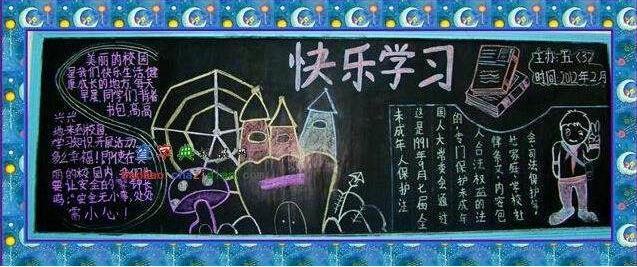 美丽的校园
是我们快乐生活,健
康成长的地方,每天
早晨,同学们背着
书包,高高
兴兴
地来到校园
学习知识开展活动
多么幸福!即使在美
丽的校园内,
要让安全的警钟长
鸣:"安全无小事,处处
常小心!"
快乐学习
主办:五〈3〉
时间:2012年2月
未成年人保护法
这是1991年9月七届全
国人大常委会通过
的,专门保护未成年
人合法权益的法
律条文,内容包
家庭、学校社
会司法保护等,